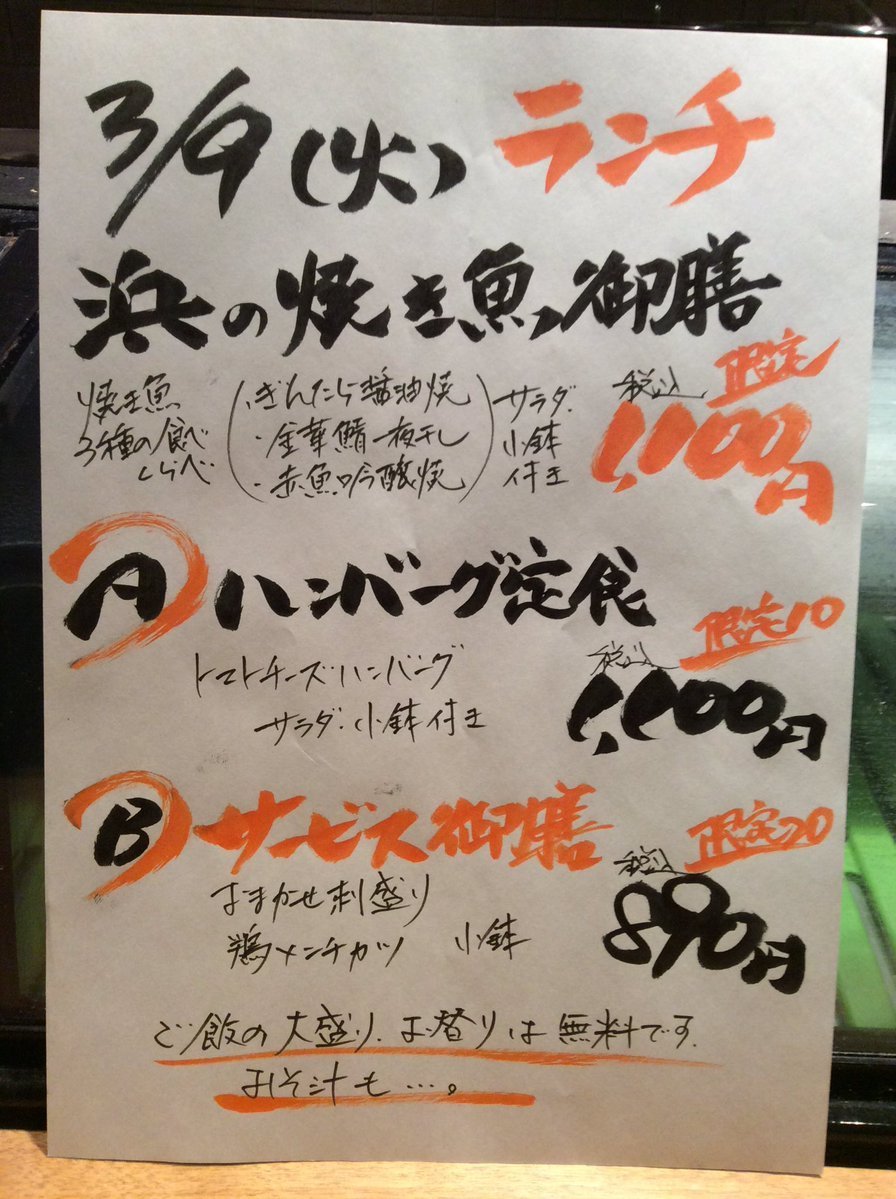 3/9(火) ランチ
浜の焼き魚御膳
限定
焼き魚
3種の食べ
しらべ
・ぎんたら醤油焼
・金華鯖一夜干し
・赤魚吟醸焼
サラダ・
小鉢
付き
税込
1,100円
A ハンバーグ定食
限定10
トマトチーズハンバーグ
サラダ・小鉢付き
税込
1,000円
B サービス御膳
限定20
おまかせ刺盛り
鶏メンチカツ 小鉢
税込
890円
ご飯の大盛り、お替りは無料です。
みそ汁も…。